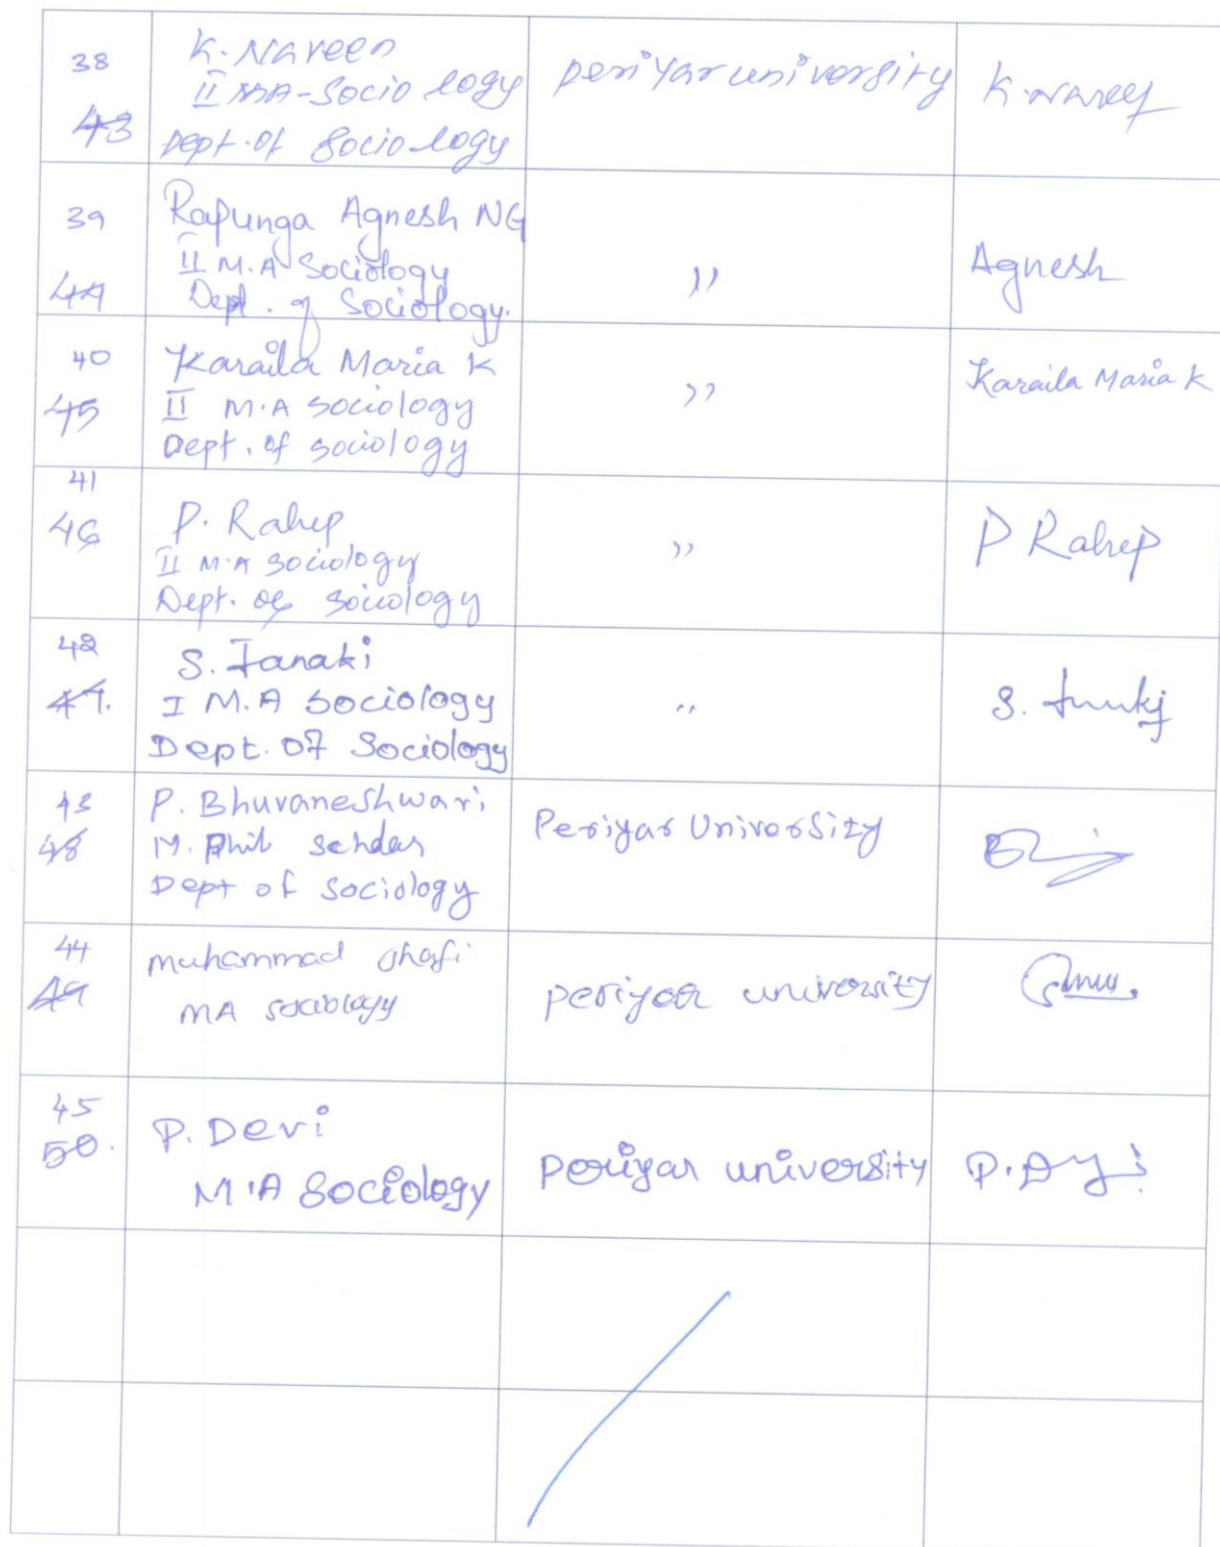 38
43
K. Naveen
II MA-Sociology
Dept. of Sociology
periyar university
K. Naveen
39
44
Rapunga Agnesh NG
II M.A Sociology
Dept. of Sociology.
"
Agnesh
40
45
Karaila Maria K
II M.A sociology
Dept. of sociology
"
Karaila Maria K
41
46
P. Rahep
II M.A sociology
Dept. of sociology
"
P Rahep
42
47.
S. Janaki
I M.A Sociology
Dept. of Sociology
"
S.
43
48
P. Bhuvaneshwari
M. Phil
Dept of Sociology
Periyar University
44
49
Muhammad Shafi
MA sociology
periyar university
45
50.
P. Devi
M.A Sociology
periyar university
P.